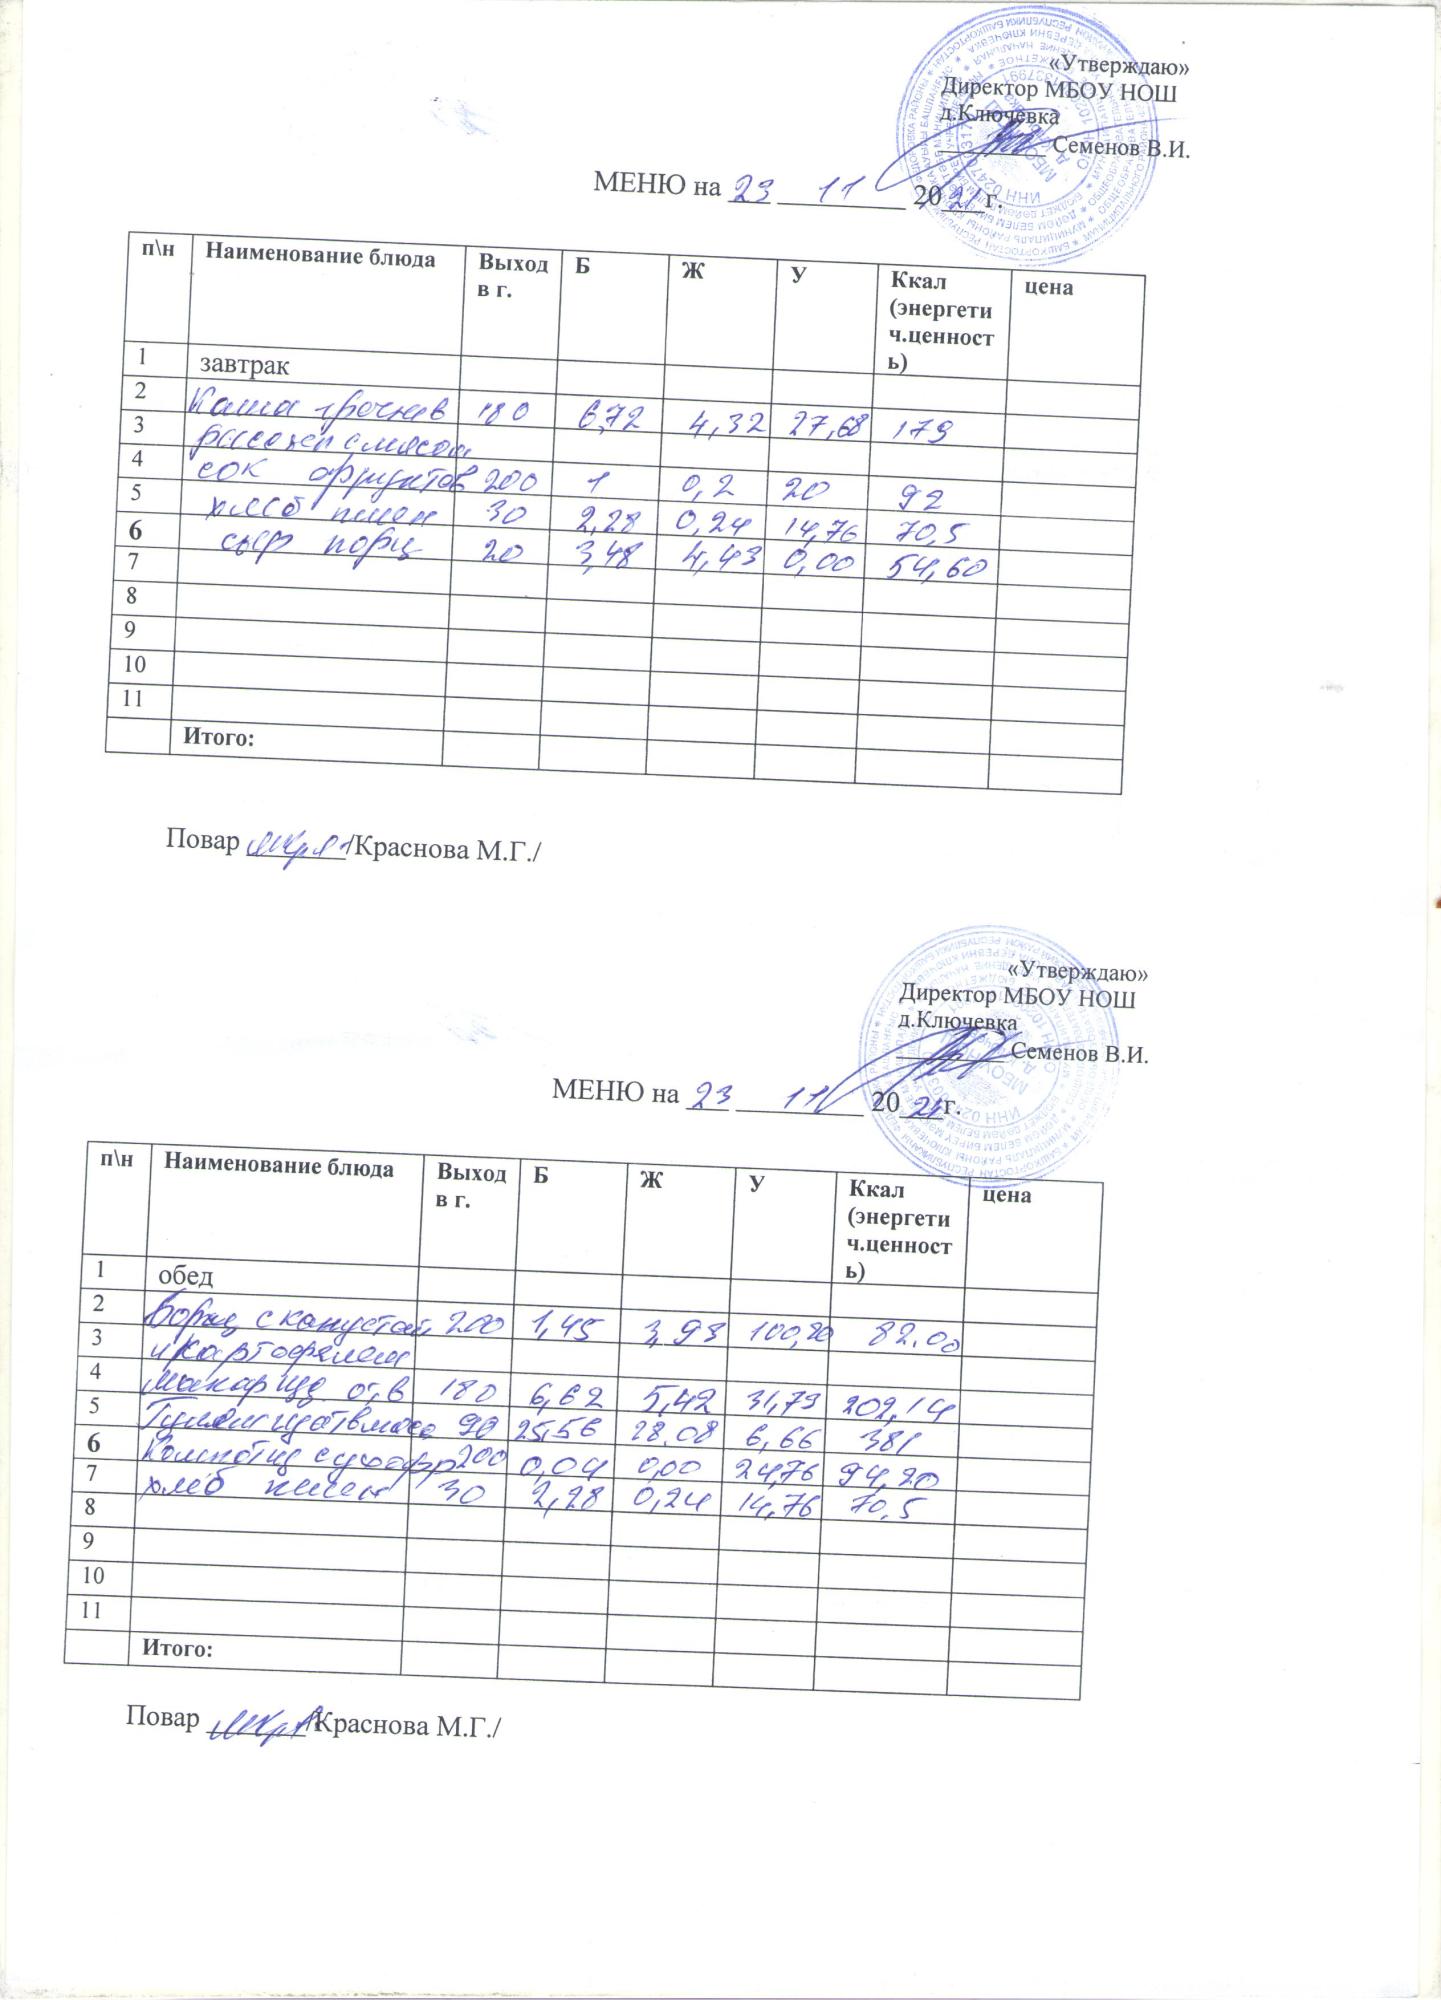 «Утверждаю»
Директор МБОУ НОШ
д.Ключевка
Семенов В.И.
МЕНЮ на 23 11 2021г.
п\н Наименование блюда Выход в г. Б Ж У Ккал (энергетич.ценность) цена
1 завтрак
2 Каша гречнев 180 6,72 4,32 27,68 179
3
4 сок фруктов 200 1 0,2 20 92
5 хлеб пшен 30 2,28 0,24 14,76 70,5
6 сыр порц 20 3,48 4,43 0,00 54,60
7
8
9
10
11
Итого:
Повар /Краснова М.Г./
«Утверждаю»
Директор МБОУ НОШ
д.Ключевка
Семенов В.И.
МЕНЮ на 23 11 2021г.
п\н Наименование блюда Выход в г. Б Ж У Ккал (энергетич.ценность) цена
1 обед
2 Борщ с капустой 200 1,45 3,93 100,20 82.00
3 и картофелем
4 отв 180 6,62 5,42 31,79 202,14
5 90 25,56 28.08 6,66 381
6 200 0,04 0,00 24,76 94,20
7 хлеб пшен 30 2,28 0,24 14,76 70,5
8
9
10
11
Итого:
Повар /Краснова М.Г./